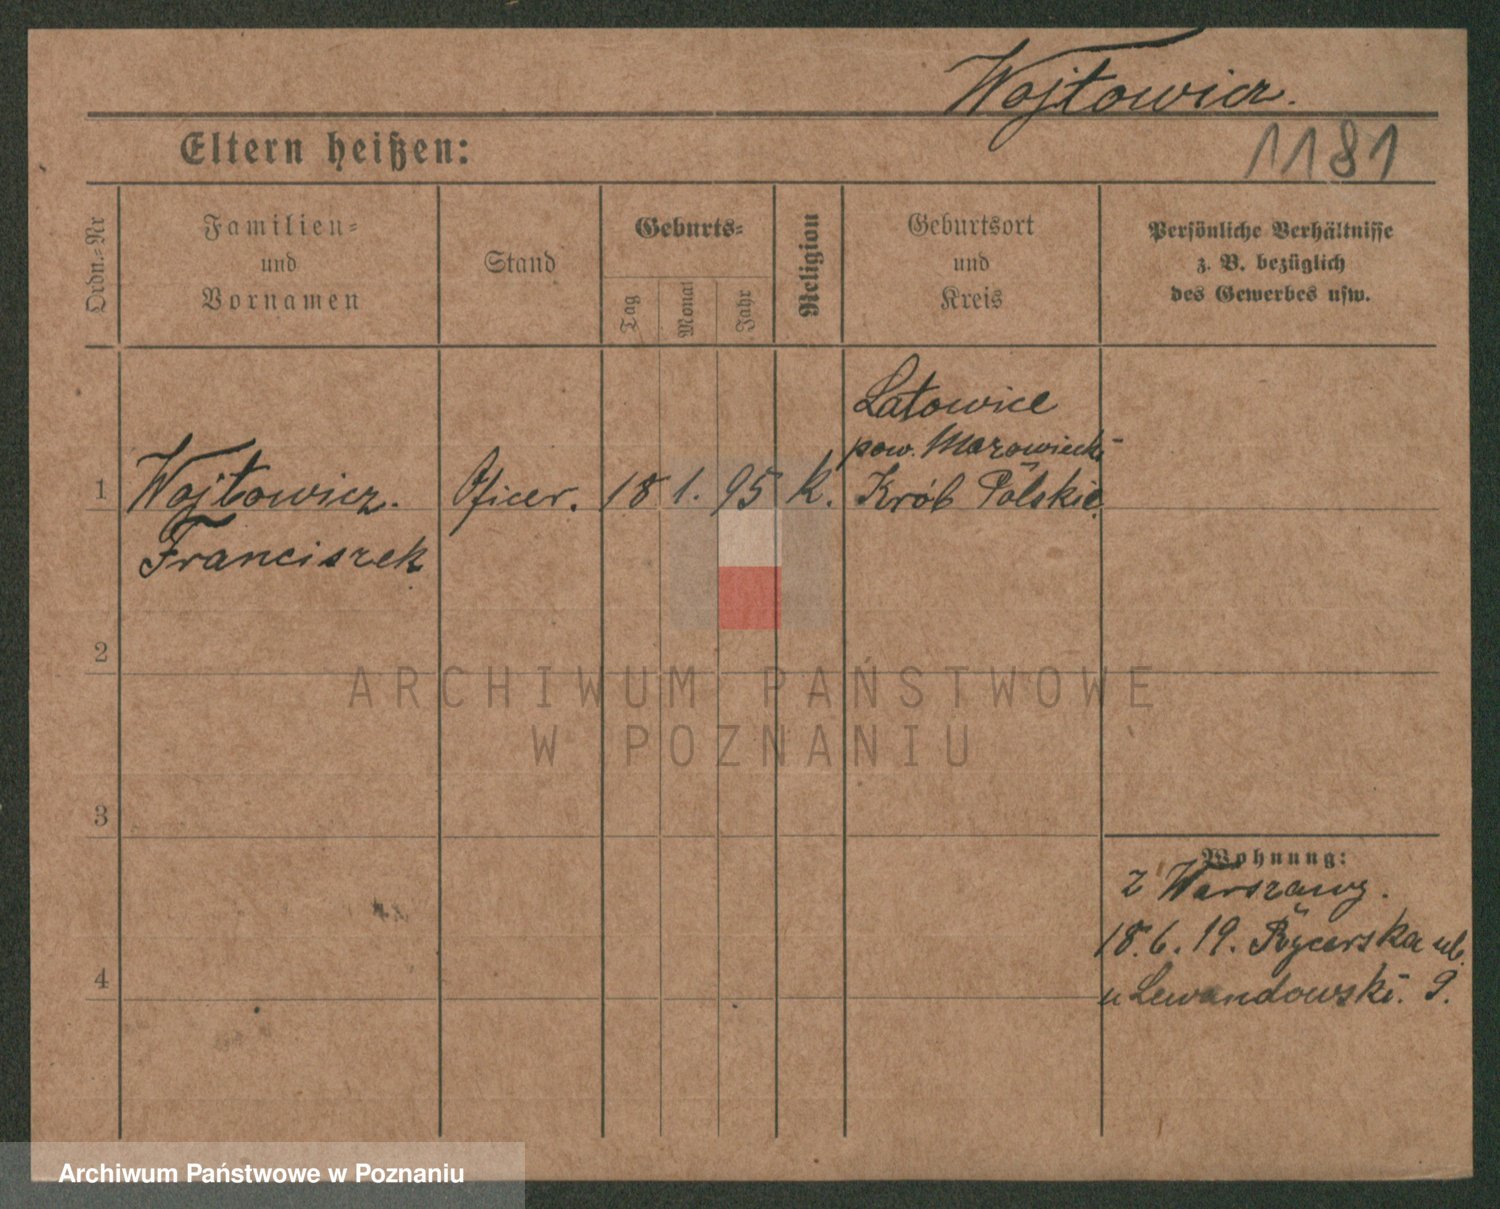 Wojtowicz.
Eltern heißen:
1181
Ordn.-Nr
Familien-
und
Vornamen
Stand
Geburts-
Tag
Monat
Jahr
Religion
Geburtsort
und
Kreis
Persönliche Verhältnisse
z. B. bezüglich
des Gewerbes usw.
Latowice
pow. Mazowiecki
1 Wojtowicz. Oficer. 18 1. 95 K. Król Polskie.
Franciszek
2
ARCHIWUM PAŃSTWOWE
W POZNANIU
3
Wohnung:
z Warszawy.
18. 6. 19. Rycerska ul.
4
u Lewandowski. 9.
Archiwum Państwowe w Poznaniu